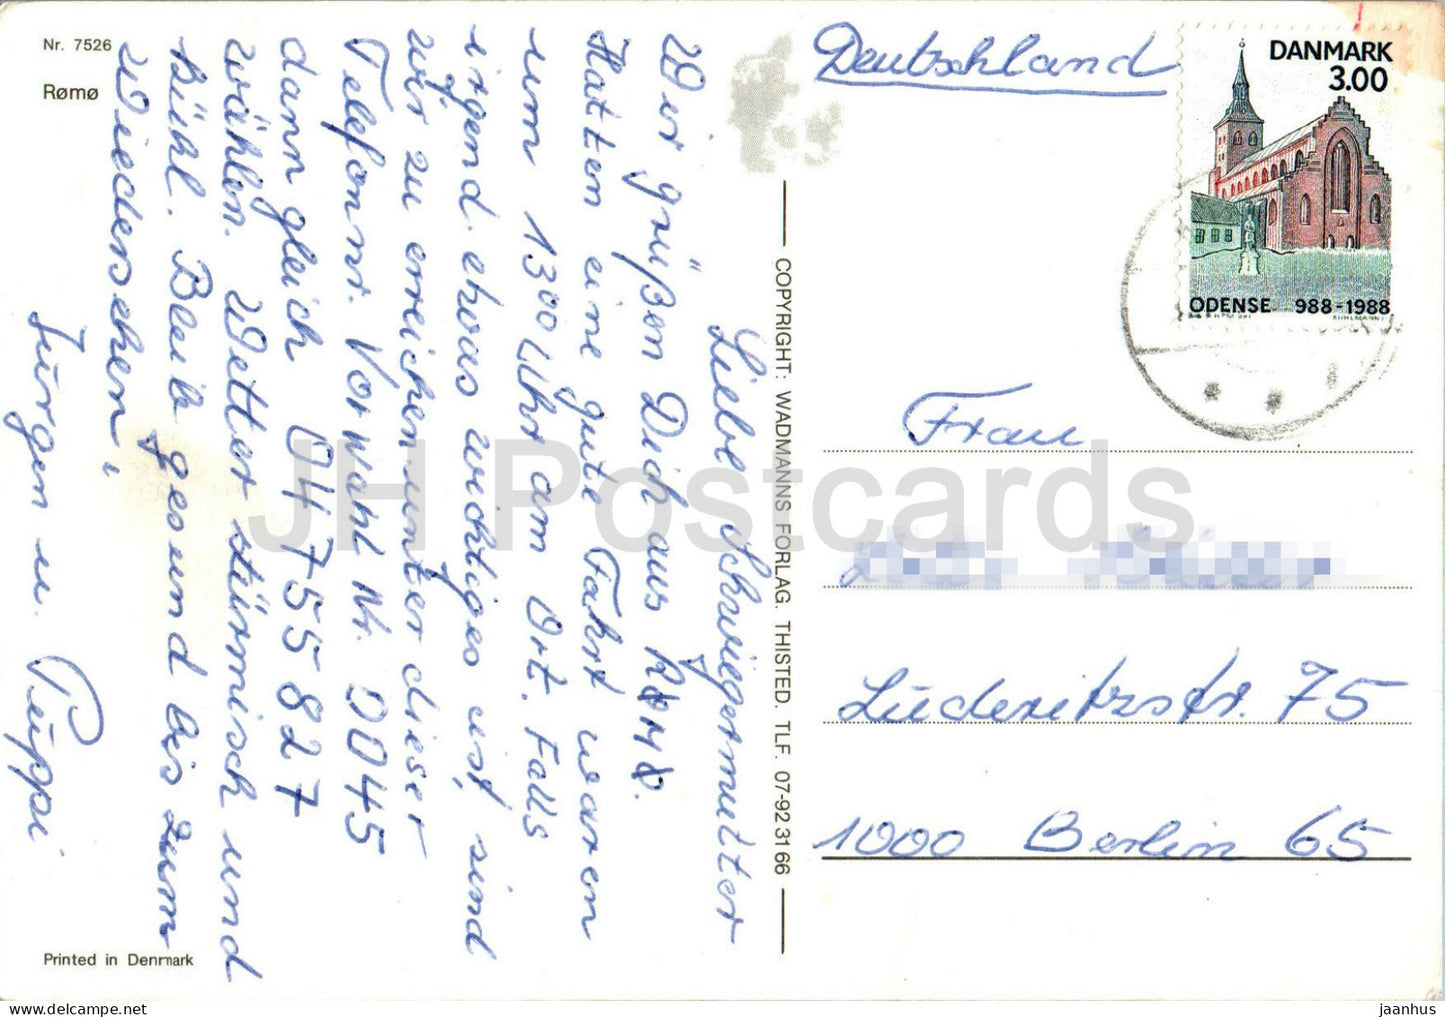 Nr. 7526
Rømø
Liebe Schwiegermutter
Wir grüßen Dich aus Rømø.
Hatten eine gute Fahrt waren
um 1300 Uhr am Ort. Falls
irgend etwas wichtiges ist, sind
wir zu erreichen unter dieser
Telefonnr. Vorwahl Nr. 0045
dann gleich 04 75 58 27
wählen. Wetter stürmisch und
kühl. Bleib gesund bis zum
Wiedersehen,
Jürgen u. Puppi
Printed in Denmark
COPYRIGHT: WADMANNS FORLAG. THISTED. TLF. 07-92 31 66
Deutschland
DANMARK
3.00
ODENSE 988-1988
Frau
Lüderitzstr. 75
1000 Berlin 65
JH Postcards
jaanhus